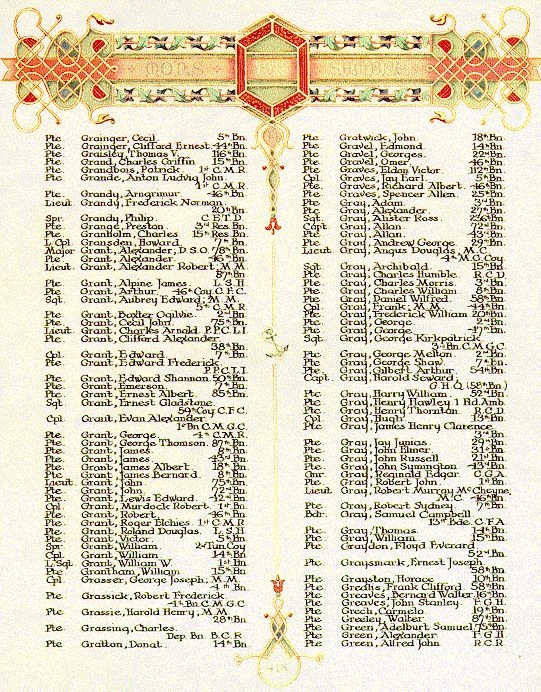 Pte Grainger, Cecil. 5th Bn.
Pte. Grainger, Clifford Ernest. 44th Bn.
Pte. Graisley, Thomas V. 116th Bn.
Pte. Grand, Charles Griffin 15th Bn.
Pte. Grandbois, Patrick. 1st C.M.R.
Pte. Grande, Anton Ludvig John
1st C.M.R.
Pte. Grandy, Arngrimur. 46th Bn.
Lieut. Grandy, Frederick Norman.
20th Bn.
Spr. Grandy, Philip. C.E.T.D.
Pte. Grange, Preston. 3rd Res. Bn.
Pte. Granholm, Charles 15th Res. Bn.
L.Cpl. Gransden, Howard. 7th Bn.
Major Grant, Alexander; D.S.O. 78th Bn.
Pte. Grant, Alexander. 46th Bn.
Lieut. Grant, Alexander Robert; M.M.
87th Bn
Pte. Grant, Alpine James. L.S.H
Pte. Grant, Arthur 46th Coy. C.F.C.
Sgt. Grant, Aubrey Edward; M.M.
5th C.M.R.
Pte. Grant, Baxter Ogilvie. 2nd Bn.
Pte. Grant, Cecil John. 75th Bn.
Lieut. Grant, Charles Arnold. P.P.C.L.I.
Pte. Grant, Clifford Alexander
38th Bn
Cpl. Grant, Edward. 7th Bn.
Pte. Grant, Edward Frederick.
P.P.C.L.I.
Pte. Grant, Edward Shannon. 50th Bn.
Pte. Grant, Emerson. 7th Bn.
Pte. Grant, Ernest Albert. 85th Bn.
Sgt. Grant, Ernest Gladstone
59th Coy. C.F.C.
Cpl. Grant, Evan Alexander
1st Bn C.M.G.C
Pte. Grant, George 4th C.M.R.
Pte. Grant, George Thomson. 87th Bn.
Pte. Grant, James. 8th Bn.
Pte. Grant, James. 43rd Bn.
Pte. Grant, James Albert. 18th Bn.
Pte. Grant, James Bernard. 8th Bn.
Lieut. Grant, John. 75th Bn.
Pte. Grant, John. 72nd Bn.
Pte. Grant, Lewis Edward. 42nd Bn.
Cpl. Grant, Murdock Robert. 1st Bn.
Pte. Grant, Robert. 46th Bn.
Pte. Grant, Roger Elchies. 1st C.M.R
Pte. Grant, Roland Douglas. L.S.H
Pte. Grant, Victor. 5th Bn
Spr. Grant, William 2nd Tun. Coy
Cpl. Grant, William. 14th Bn
L.Sgt Grant, William W. 1st Bn.
Pte Grantham, William 15th Bn.
Cpl. Grasser, George Joseph; M.M.
4th Bn.
Pte Grassick, Robert Frederick
1st Bn. C.M.G.C
Pte Grassie, Harold Henry; M.M
28th Bn
Pte Grassing, Charles.
Dep. Bn. B.C.R
Pte Gratton, Donat. 14th Bn.
Pte Gratwick, John 18th Bn.
Pte Gravel, Edmond 14th Bn.
Pte Gravel, Georges. 22nd Bn.
Pte Gravel, Omer. 46th Bn.
Pte. Graves, Eldon Victor 112th Bn
Cpl Graves, Jay Earl. 5th Bn.
Pte. Graves, Richard Albert. 46th Bn.
Pte Graves, Spencer Allen. 25th Bn.
Pte Gray, Adam. 3rd Bn
Pte Gray, Alexander. 27th Bn.
Sgt Gray, Alister Ross. 236th Bn.
Capt Gray, Allan. 72nd Bn
Pte Gray, Allan. 43rd Bn.
Pte Gray, Andrew George 29th Bn.
Lieut. Gray, Angus Douglas, M.C.
4th M.G. Coy.
Sgt. Gray, Archibald 15th Bn.
Pte. Gray, Charles Humble R.C.D.
Pte Gray, Charles Morris. 3rd Bn.
Pte Gray, Charles William. 8th Bn.
Pte. Gray, Daniel Wilfred. 58th Bn.
Cpl. Gray, Frank; M.M. 44th Bn.
Pte. Gray, Frederick William 20th Bn.
Pte Gray, George. 2nd Bn.
Pte Gray, George. 47th Bn.
Sgt. Gray, George Kirkpatrick
3rd Bn. C.M.G.C.
Pte Gray, George Melton. 2nd Bn.
Pte Gray, George Shaw 7th Bn.
Pte. Gray, Gilbert Arthur 54th Bn.
Capt. Gray, Harold Seward,
G.H.Q. (58th Bn)
Pte Gray, Harry William 52nd Bn.
Pte Gray, Henry Hawley 1 Rd. Amb.
Pte Gray, Henry Thornton. R.C.D.
Cpl. Gray, Hugh 13th Bn
Pte Gray, James Henry Clarence.
3rd Bn.
Pte Gray, Jay Junias. 29th Bn.
Pte Gray, John Elmer 31st Bn.
Pte Gray, John Russell 21st Bn.
Pte Gray, John Symington 43rd Bn.
Gnr Gray, Reginald Edgar. C.G.A.
Pte Gray, Robert John 1st Bn.
Lieut Gray, Robert Murray McCheyne;
M.C. 46th Bn.
Pte Gray, Robert Sydney. 7th Bn.
Bdr. Gray, Samuel Campbell
13th Bde. C.F.A
Pte Gray, Thomas. 14th Bn
Pte Gray, William 15th Bn.
Pte Graydon, Floyd Everard
52nd Bn
Pte Graysmark, Ernest Joseph
58th Bn
Pte Grayston, Horace. 10th Bn.
Pte Greaves, Bernard Walter. 16th Bn.
Pte Greaves, John Stanley. F.G.H.
Pte Greeley, Walter 87th Bn.
Pte Green, Adelburt Samuel. 75th Bn.
Pte Green, Alexander F.G.H
Pte Green, Alfred John R.C.R.